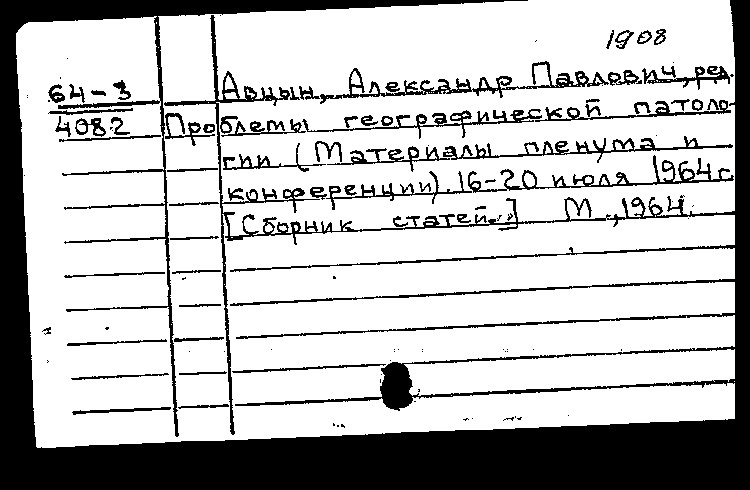 1908
64-3 Авцын, Александр Павлович, ред.
4082 Проблемы географической патоло-
гии. (Материалы пленума и
конференции). 16-20 июля 1964 г.
[Сборник статей.] М., 1964.